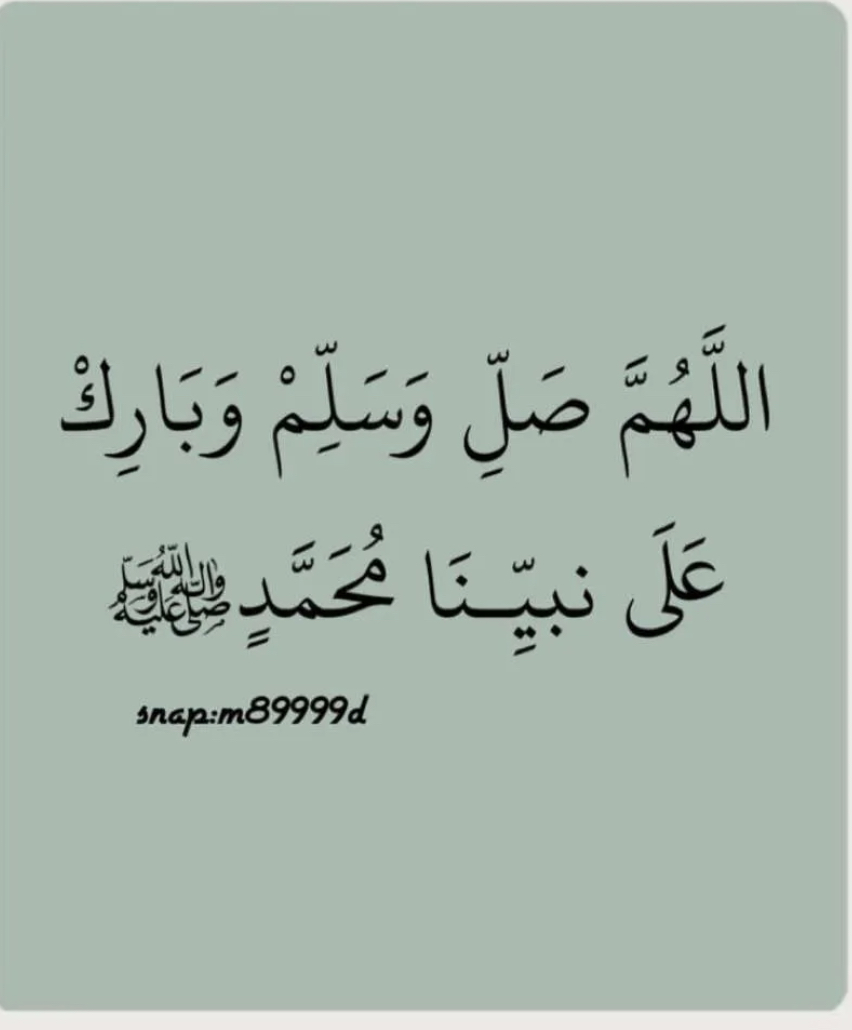 اللَّهُمَّ صَلِّ وَسَلِّمْ وَبَارِكْ
عَلَى نبيِّـنَا مُحَمَّدٍ ﷺ
snap:m89999d